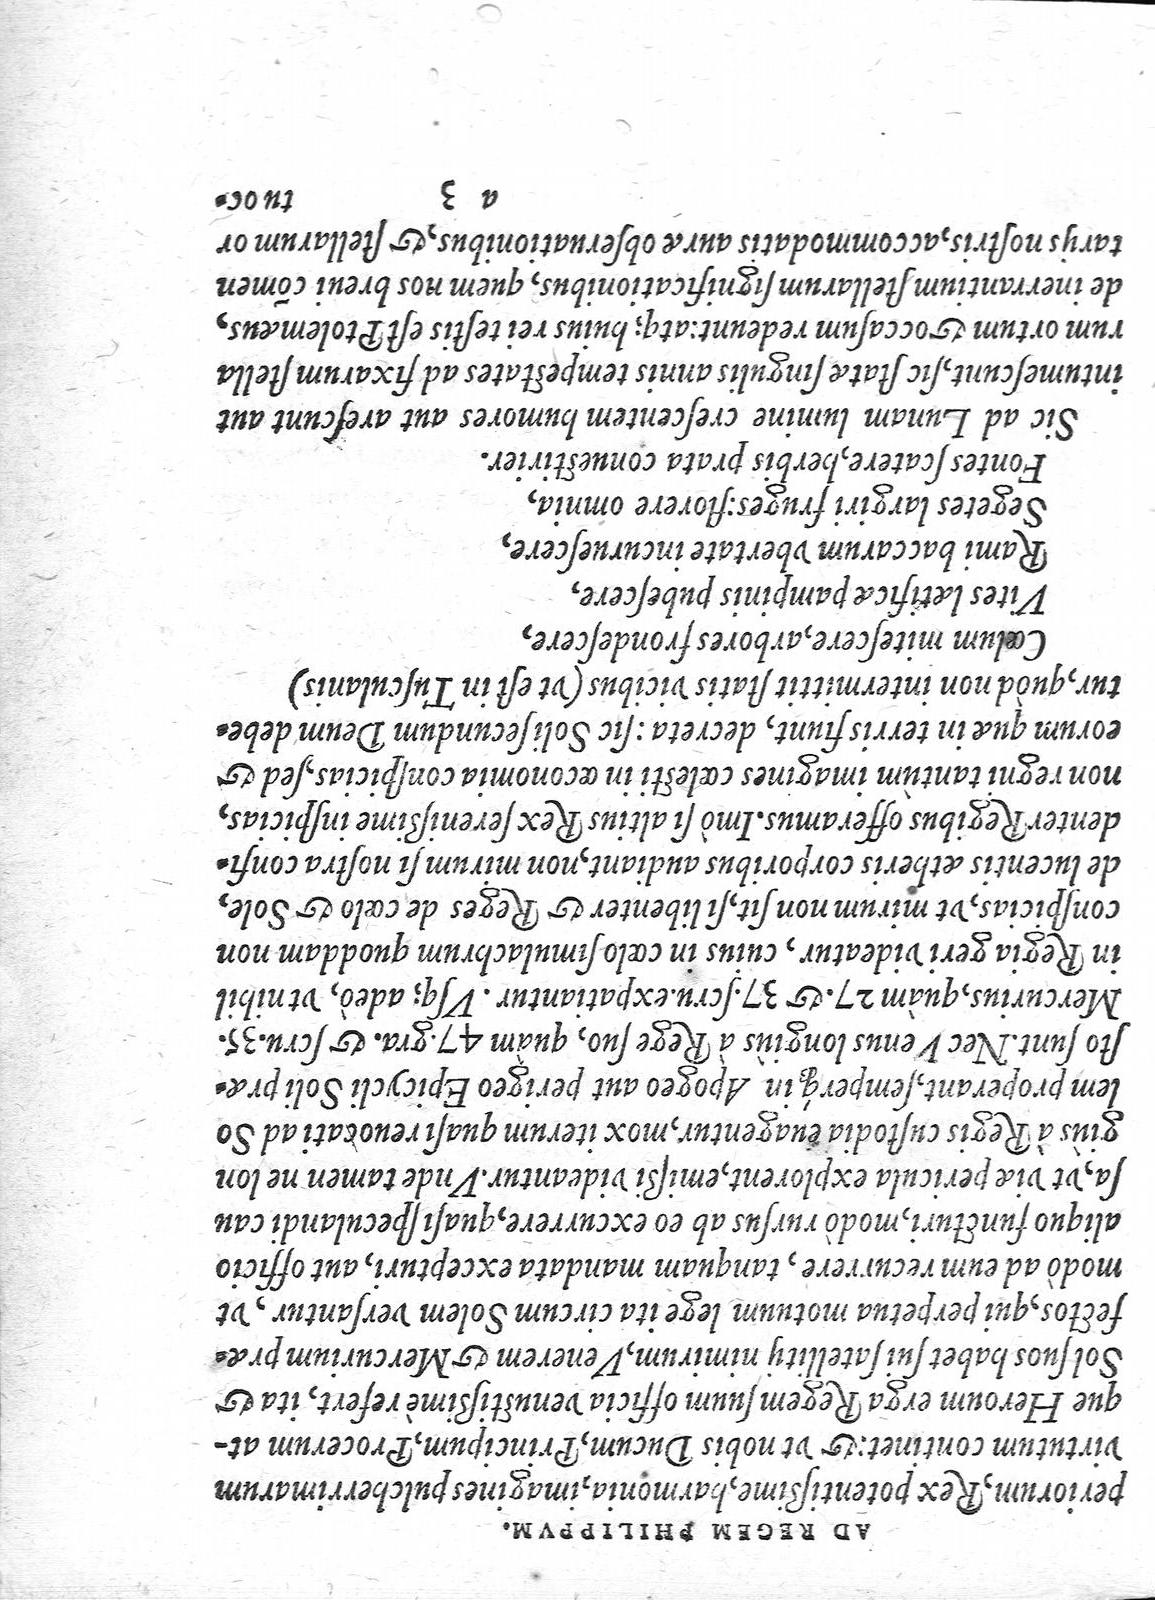 AD REGEM PHILIPPVM.
periorum, Rex potentißime, harmonia, imagines pulcherrimarum
virtutum continet: & vt nobis Ducum, Principum, Procerum at-
que Heroum erga Regem suum officia venustißimè refert, ita &
Sol suos habet sui satellitij nimirum, Venerem & Mercurium præ-
fectos, qui perpetua motuum lege ita circum Solem versantur, vt
modò ad eum recurrere, tanquam mandata excepturi, aut officio
aliquo functuri, modò rursus ab eo excurrere, quasi speculandi cau
sa, vt viæ pericula explorent, emißi videantur. Vnde tamen ne lon
giùs à Regis custodia euagentur, mox iterum quasi reuocati ad So
lem properant, semperq́; in Apogeo aut perigeo Epicycli Soli præ-
sto sunt. Nec Venus longiùs à Rege suo, quàm 47. gra. & scru. 35.
Mercurius, quàm 27. & 37. scru. expatiantur. Vsq; adeò, vt nihil
in Regia geri videatur, cuius in cœlo simulachrum quoddam non
conspicias, vt mirum non sit, si libenter & Reges de cœlo & Sole,
de lucentis ætheris corporibus audiant, non mirum si nostra confi-
denter Regibus offeramus. Imò si altius Rex serenißime inspicias,
non regni tantùm imagines cœlesti in œconomia conspicias, sed &
eorum quæ in terris fiunt, decreta: sic Soli secundum Deum debe-
tur, quòd non intermittit statis vicibus (vt est in Tusculanis)
Cœlum mitescere, arbores frondescere,
Vites lætificæ pampinis pubescere,
Rami baccarum vbertate incuruescere,
Segetes largiri fruges: florere omnia,
Fontes scatere, herbis prata conuestirier.
Sic ad Lunam lumine crescentem humores aut arescunt aut
intumescunt, sic statæ singulis annis tempestates ad fixarum stella
rum ortum & occasum redeunt: atq; huius rei testis est Ptolemæus,
de inerrantium stellarum significationibus, quem nos breui cōmen
tarijs nostris, accommodatis auræ obseruationibus, & stellarum or
a 3 tu oc-